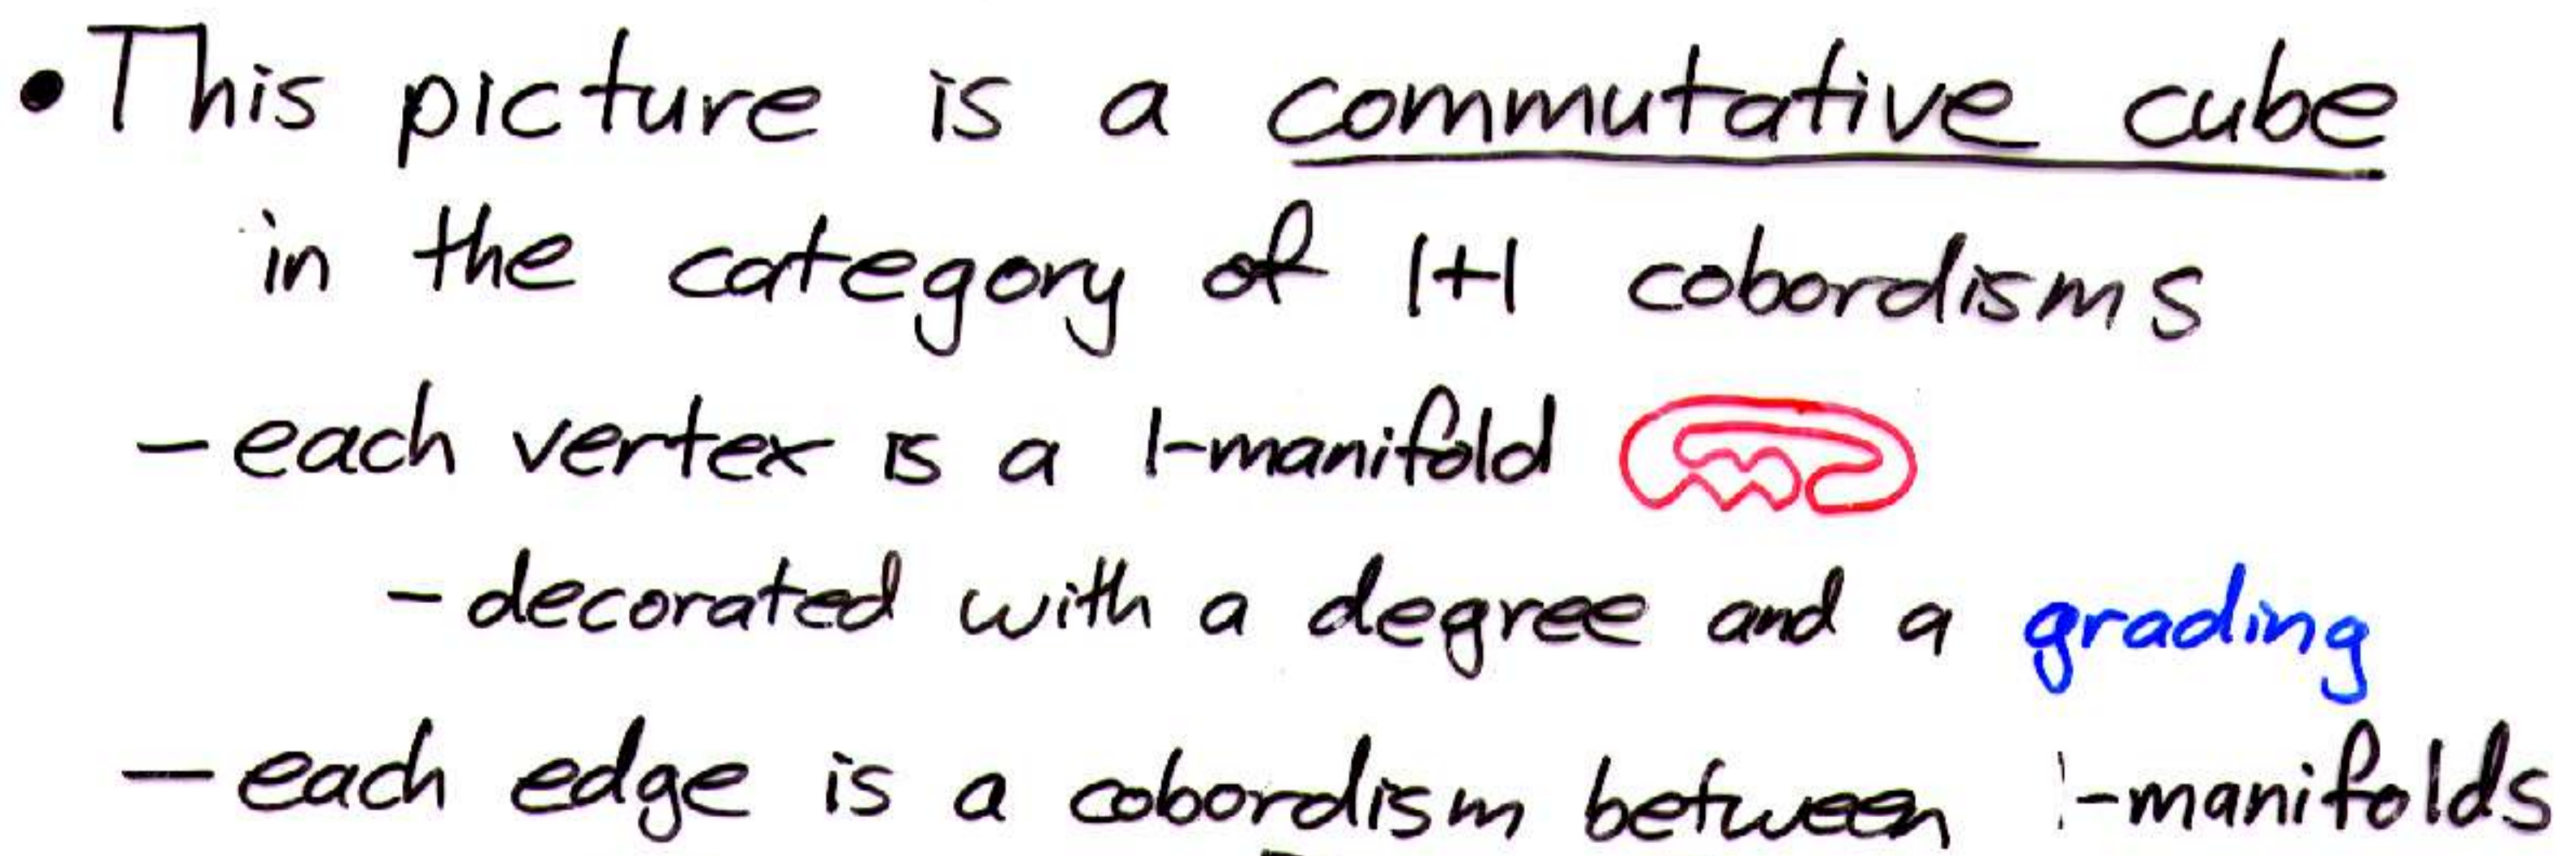 • This picture is a commutative cube
in the category of 1+1 cobordisms
- each vertex is a 1-manifold
- decorated with a degree and a grading
- each edge is a cobordism between 1-manifolds